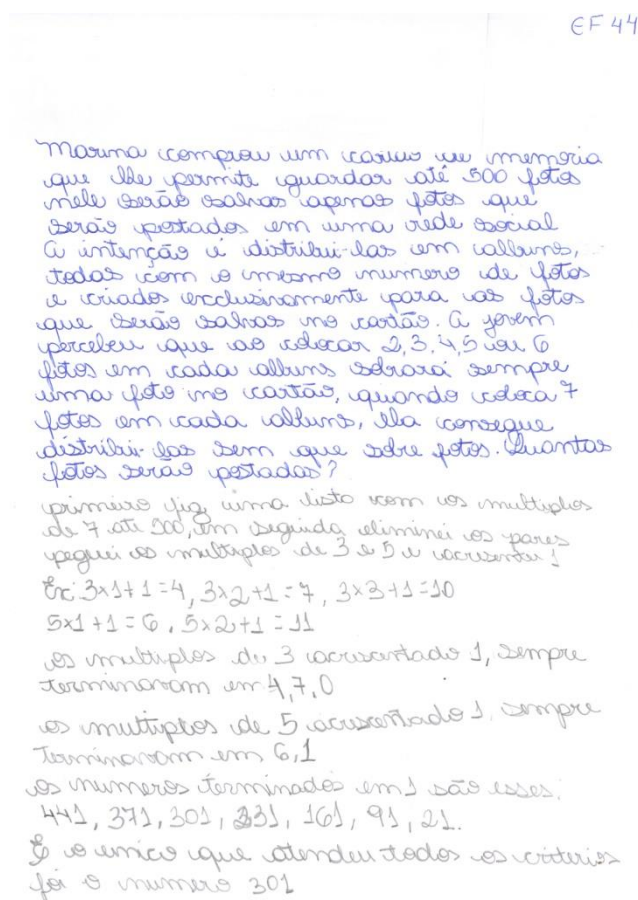 EF 44
Marina comprou um cartão de memoria
que lhe permite guardar até 500 fotos
nele serão salvas apenas fotos que
serão postados em uma rede social
A intenção é distribui-las em albuns,
todas com o mesmo numero de fotos
e criados exclusivamente para as fotos
que serão salvas no cartão. A jovem
percebeu que ao colocar 2,3,4,5 ou 6
fotos em cada albuns sobrará sempre
uma foto no cartão, quando coloca 7
fotos em cada albuns, ela consegue
distribui-las sem que sobre fotos. Quantas
fotos serão postadas?
primeiro fiz uma lista com os multiplos
de 7 até 500, em seguida eliminei os pares
peguei os multiplos de 3 e 5 e acrescentei 1
Ex: 3x1+1=4, 3x2+1=7, 3x3+1=10
5x1+1=6, 5x2+1=11
os multiplos de 3 acrescentado 1, sempre
terminavam em 4,7,0
os multiplos de 5 acrescentado 1, sempre
terminavam em 6,1
os numeros terminados em 1 são esses:
441, 371, 301, 231, 161, 91, 21.
E o unico que atendeu todos os criterios
foi o numero 301